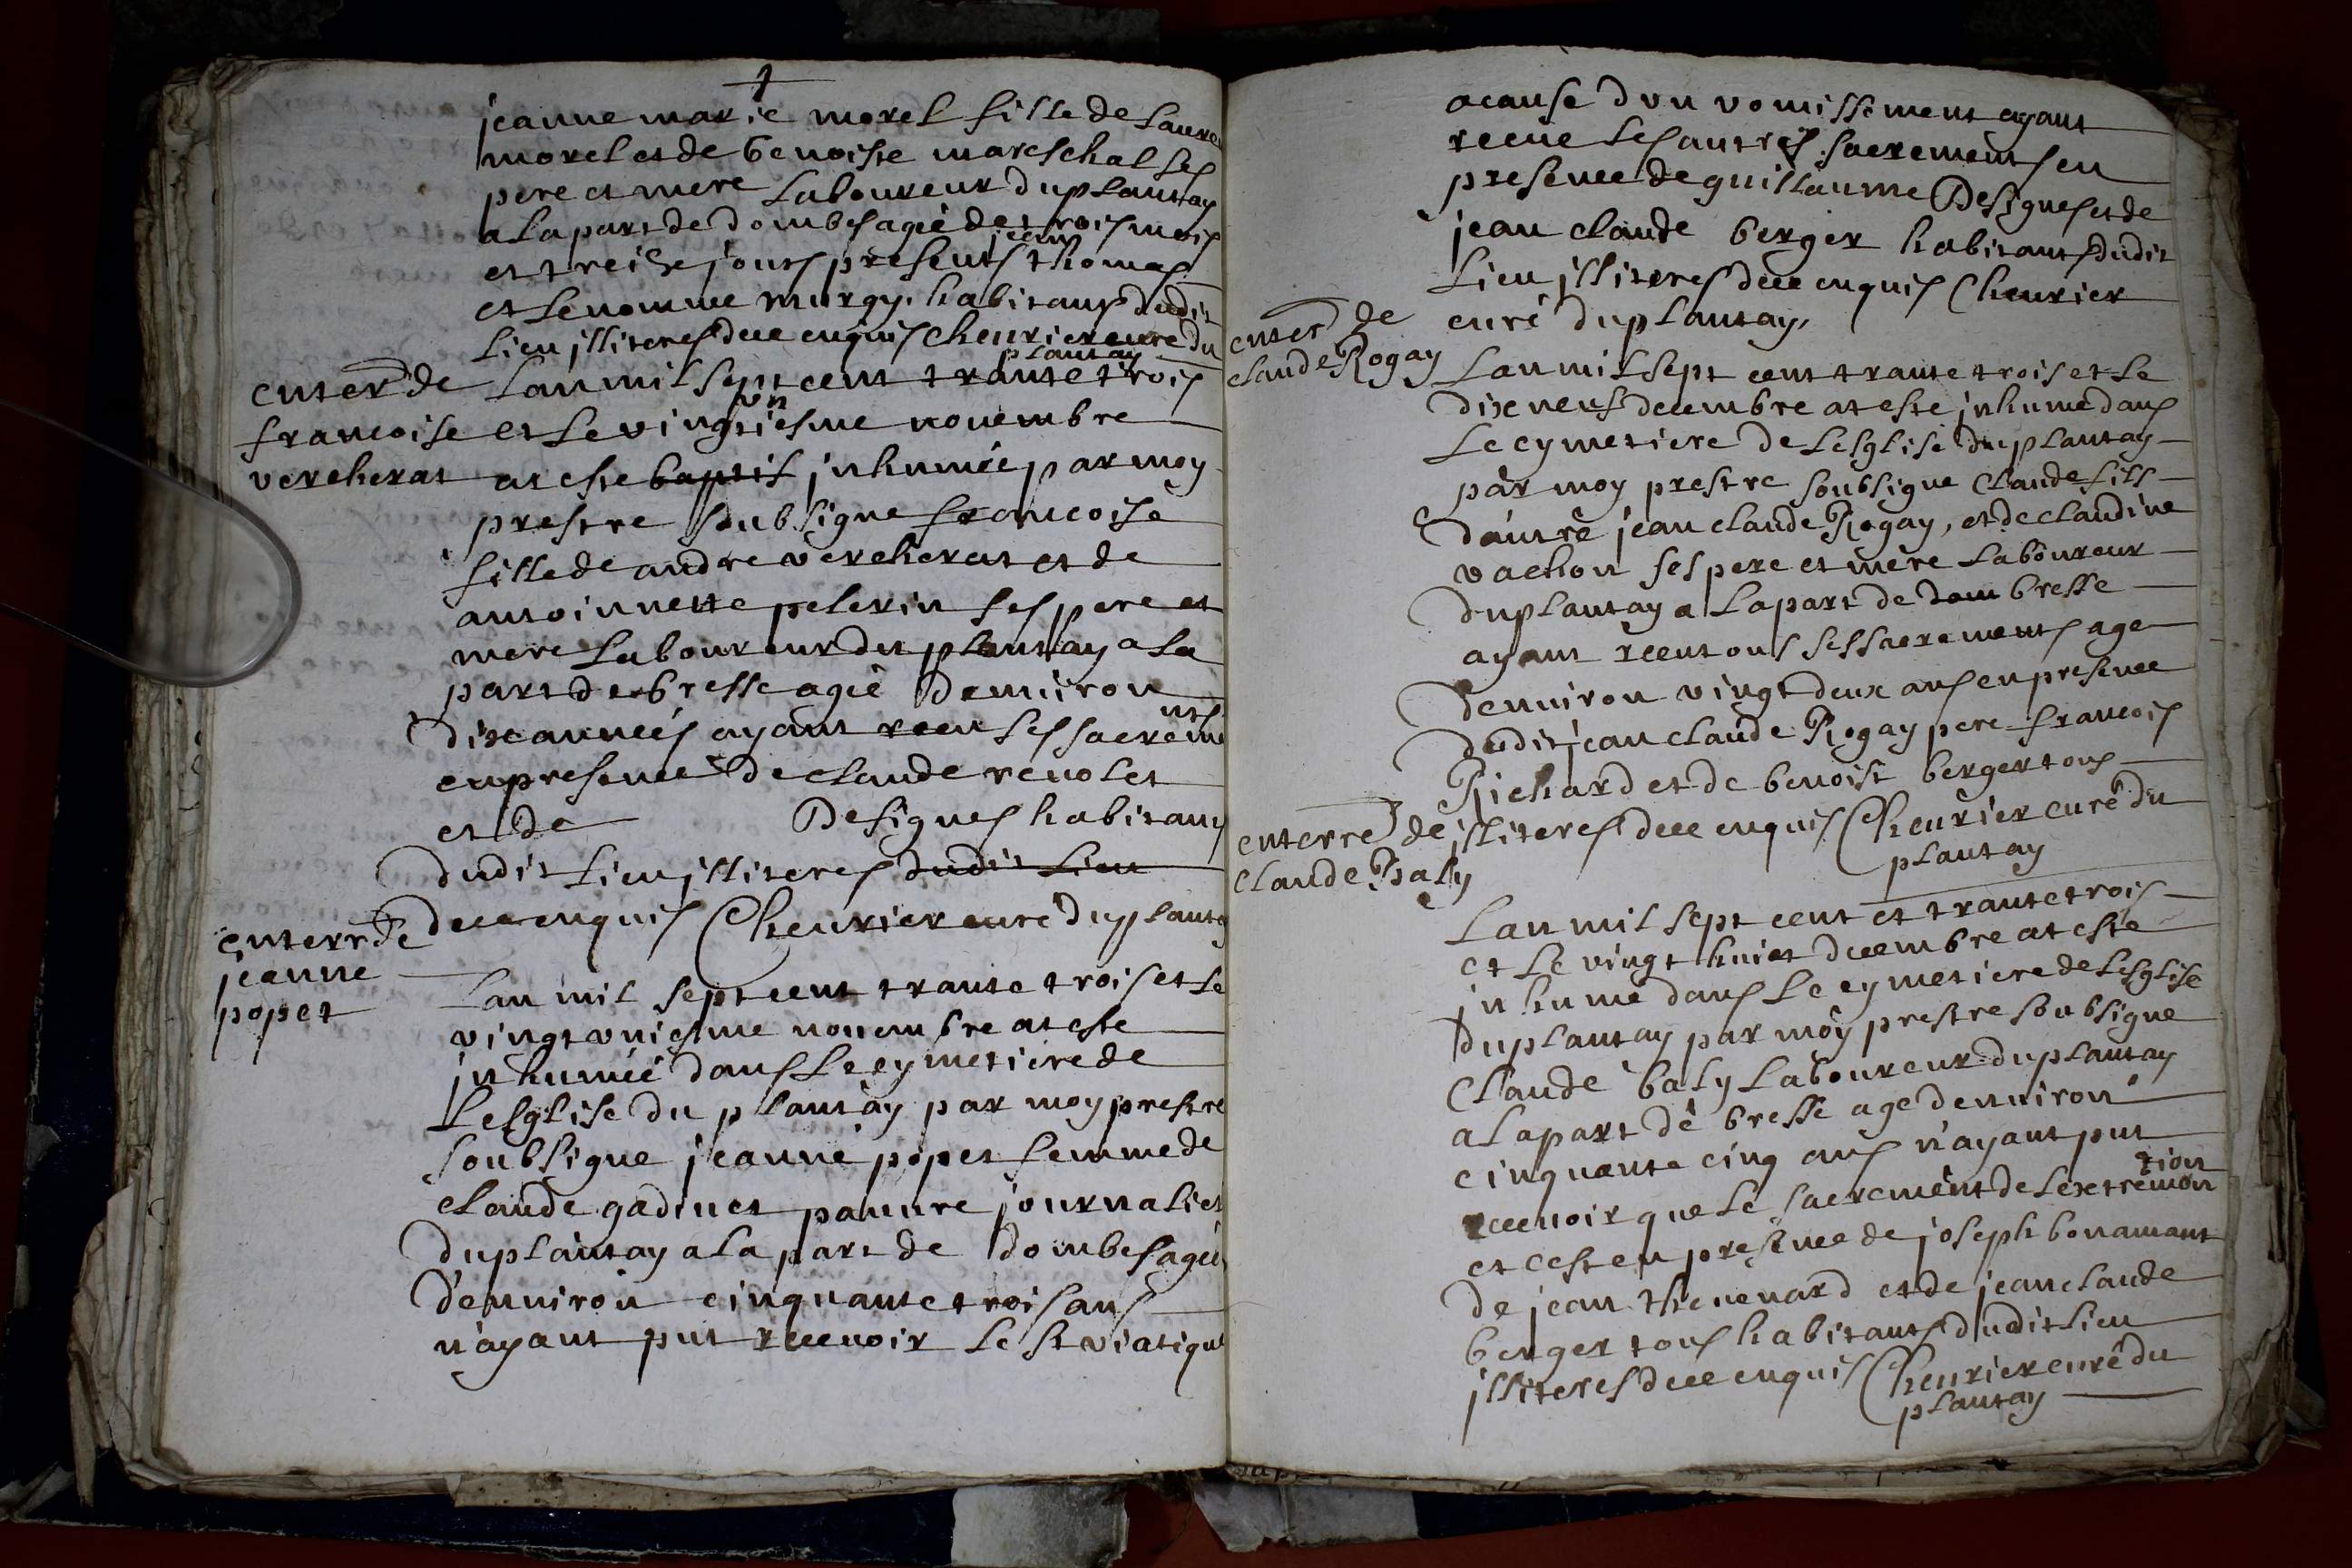 jeanne marie morel fille de Laure
morel et de benoiste mareschal ses
pere et mere Laboureur du plantay
a La part de dombes agée de trois mois
jean
et treize jours presents thomas
et Le nomme murgy habitans dudit
Lieu jlliteres dece enquis Cheurier curé du
plantay
enter de
francoise
vercherat
Lan mil sept cent trante trois
vn
et Le vingtiesme nouembre
at este baptis jnhumée par moy
prestre soubsigne francoise
fille de andre vercherat et de
antoinnette pelerin ses pere et
mere Laboureur du plantay a La
part de bresse agée denuiron
dix années ayant receu Les sacreme
nts
en presence de claude reuolet
et de Designes habitans
dudit Lieu jlliteres dudit Lieu
dece enquis Cheurier curé du plantay
enterr de
jeanne
popet
Lan mil sept cent trante trois et Le
vingt vniesme nouembre at este
jnhumée dans Le cymetiere de
Lesglise du plantay par moy prestre
soubsigne jeanne popet femme de
claude gadinet pauure journalier
du plantay a La part de dombes agée
denuiron cinquante trois ans
n'ayant put receuoir Le st viatique
acause dvn vomissement ayant
receue Les autres sacrements en
presence de guillaume Designes et de
jean claude berger habitants dudit
Lieu jlliteres dece enquis Cheurier
curé du plantay,
enter de
claude Rogay
Lan mil sept cent trante trois et Le
dixneuf decembre at este jnhumé dans
Le cymetiere de Lesglise du plantay
par moy prestre soubsigne Claude fils
dautre jean claude Rogay, et de claudine
vachon ses pere et mere Laboureur
du plantay a La part de dom bresse
ayant receu tous ses sacrements age
denuiron vingt deux ans en presence
dudit jean claude Rogay pere francois
Richard et de benoist berger tous
jlliteres dece enquis Cheurier curé du
plantay
enterre de
claude Baly
Lan mil sept cent et trante trois
et Le vingt huiet decembre at este
jnhumé dans Le cymetiere de Lesglise
du plantay par moy prestre soubsigne
Claude baly Laboureur du plantay
a La part de bresse age denuiron
cinquante cinq ans n'ayant put
receuoir que Le sacrement de Lextremon
tion
et cest en presence de joseph bonamant
de jean theuenard et de jean claude
berger tous habitants dudit Lieu
jlliteres dece enquis Cheurier curé du
plantay